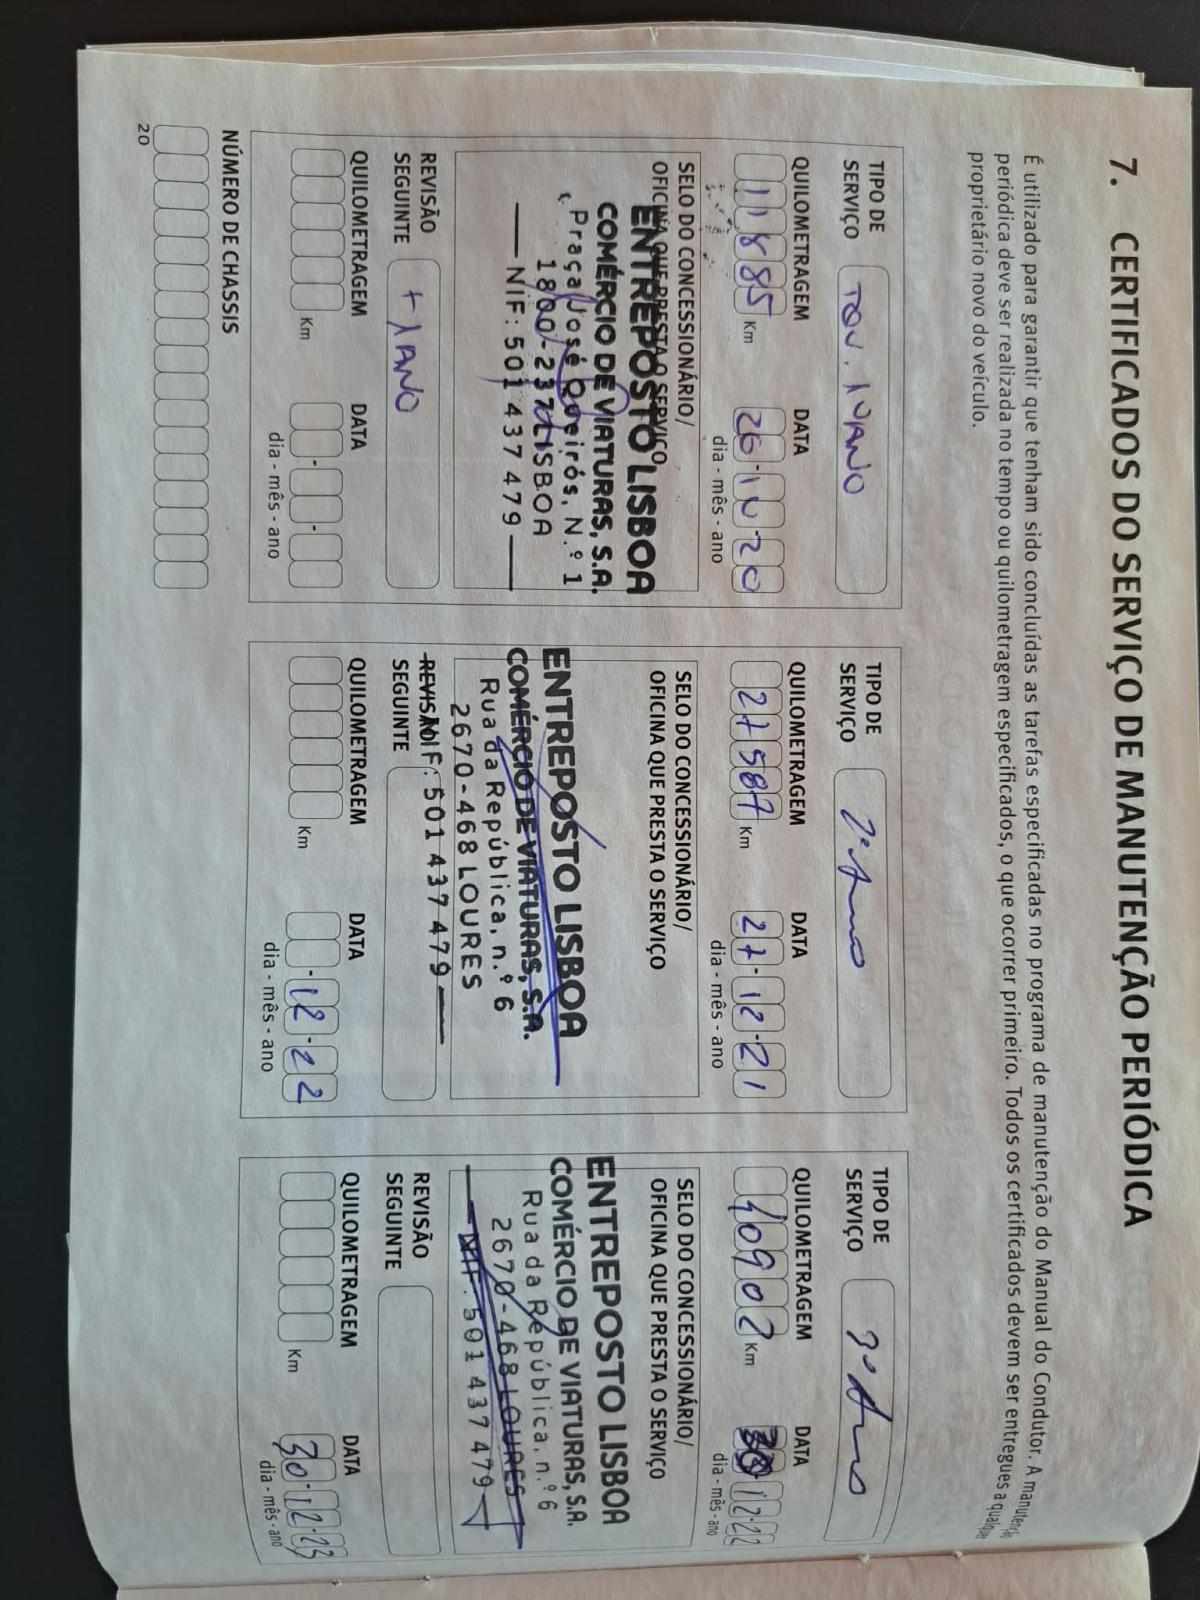 7. CERTIFICADOS DO SERVIÇO DE MANUTENÇÃO PERIÓDICA
É utilizado para garantir que tenham sido concluídas as tarefas especificadas no programa de manutenção do Manual do Condutor. A manutenção
periódica deve ser realizada no tempo ou quilometragem especificados, o que ocorrer primeiro. Todos os certificados devem ser entregues a qualquer
proprietário novo do veículo.
TIPO DE
SERVIÇO
1º ANO
QUILOMETRAGEM
11885 Km
DATA
26-10-20
dia - mês - ano
SELO DO CONCESSIONÁRIO/
OFICINA QUE PRESTA O SERVIÇO
ENTREPOSTO LISBOA
COMÉRCIO DE VIATURAS, S.A.
Praça José Queirós, N.º 1
1800-237 LISBOA
NIF: 501 437 479
REVISÃO
SEGUINTE
+ 1 ANO
QUILOMETRAGEM
Km
DATA
dia - mês - ano
TIPO DE
SERVIÇO
2º Ano
QUILOMETRAGEM
27587 Km
DATA
27-12-21
dia - mês - ano
SELO DO CONCESSIONÁRIO/
OFICINA QUE PRESTA O SERVIÇO
ENTREPOSTO LISBOA
COMÉRCIO DE VIATURAS, S.A.
Rua da República, n.º 6
2670-468 LOURES
NIF: 501 437 479
REVISÃO
SEGUINTE
QUILOMETRAGEM
Km
DATA
-12-22
dia - mês - ano
TIPO DE
SERVIÇO
3º Ano
QUILOMETRAGEM
40902 Km
DATA
30-12-22
dia - mês - ano
SELO DO CONCESSIONÁRIO/
OFICINA QUE PRESTA O SERVIÇO
ENTREPOSTO LISBOA
COMÉRCIO DE VIATURAS, S.A.
Rua da República, n.º 6
2670-468 LOURES
NIF: 501 437 479
REVISÃO
SEGUINTE
QUILOMETRAGEM
Km
DATA
30-12-23
dia - mês - ano
NÚMERO DE CHASSIS
20